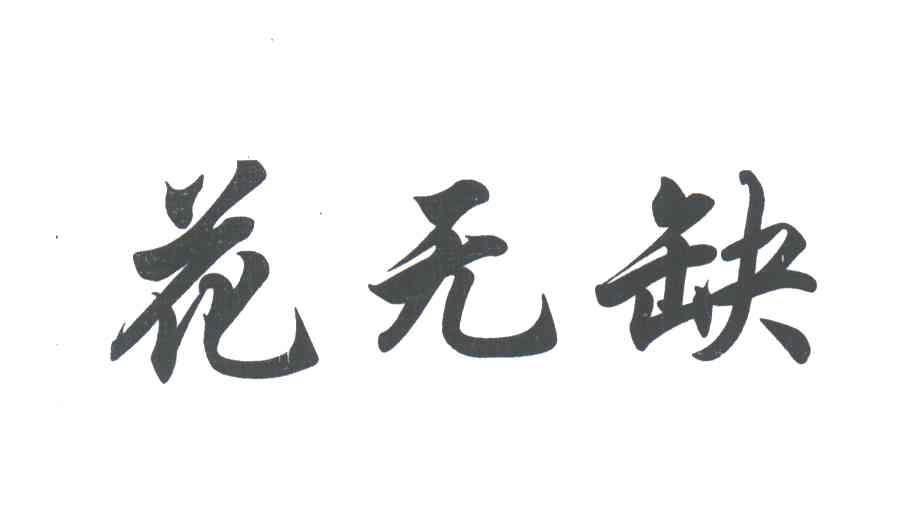 花无缺